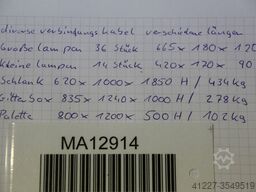 diverse verbindungs kabel verschiedene längen
Große lampen 36 Stück 665 x 180 x 120
kleine lampen 14 Stück 420 x 170 x 90
Schrank 620 x 1000 x 1850 H / 434 kg
Gitterbox 835 x 1240 x 1000 H / 278 kg
Palette 800 x 1200 x 500 H / 102 kg
MA12914
41227-3549519